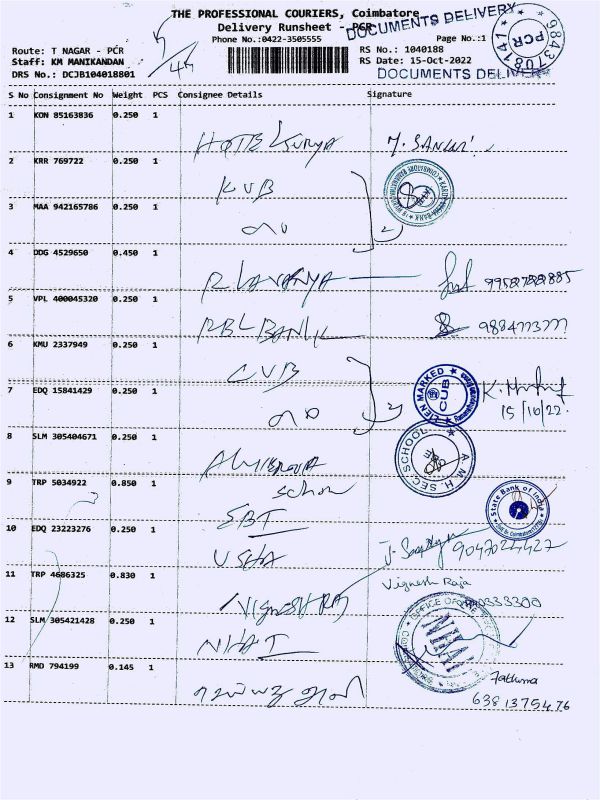 THE PROFESSIONAL COURIERS, Coimbatore
Delivery Runsheet - PCR
DOCUMENTS DELIVERY
Phone No.:0422-3505555
Page No.:1
Route: T NAGAR - PCR
Staff: KM MANIKANDAN
DRS No.: DCJB104018801
RS No.: 1040188
RS Date: 15-Oct-2022
DOCUMENTS DELIVERY
PCR
S No Consignment No Weight PCS Consignee Details Signature
1 KON 85163836 0.250 1
HOTEL SURYA
2 KRR 769722 0.250 1
KVB
3 MAA 942165786 0.250 1
4 DDG 4529650 0.450 1
R LAVANYA
5 VPL 400045320 0.250 1
RBL BANK
6 KMU 2337949 0.250 1
CUB
7 EDQ 15841429 0.250 1
LIEN MARKED
CUB
15/10/22
8 SLM 305404671 0.250 1
A. M. H. SEC. SCHOOL
9 TRP 5034922 0.850 1
School
SBI
State Bank of India
10 EDQ 23223276 0.250 1
USHA
9047024427
11 TRP 4686325 0.830 1
VIGNESH RAJ
Vignesh Raja
12 SLM 305421428 0.250 1
13 RMD 794199 0.145 1
Fathima
6381375476